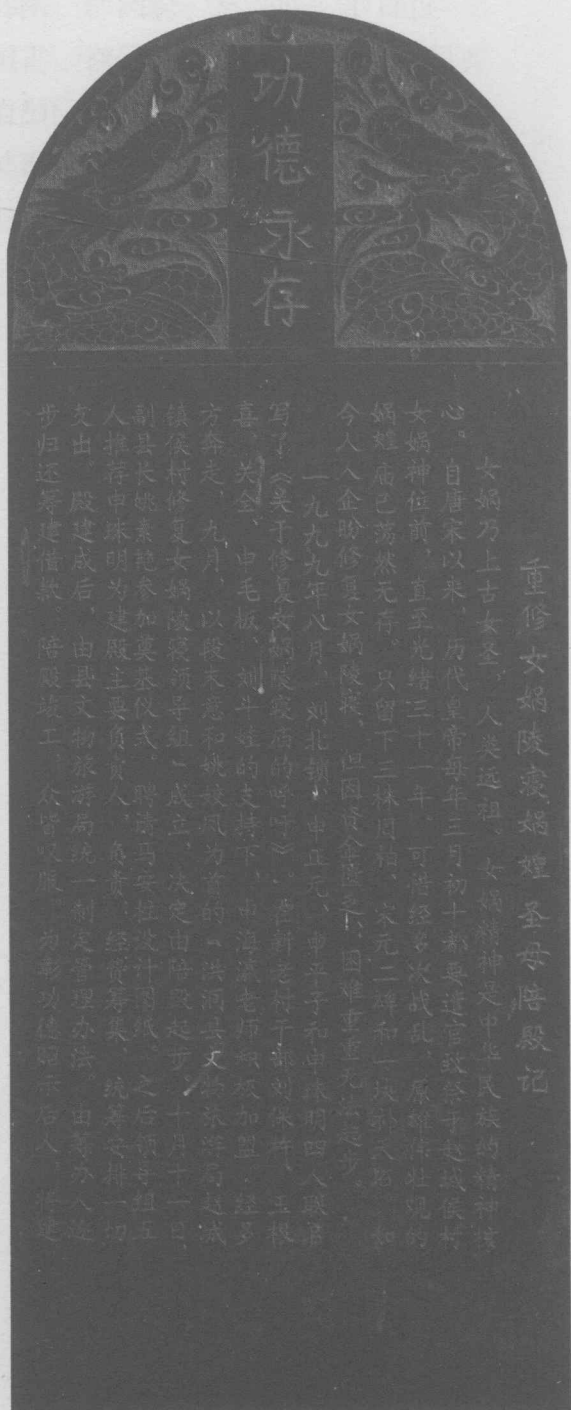 功德永存
重修女娲陵寝娲媓圣母陪殿记
女娲乃上古女圣，人类远祖。女娲精神是中华民族的精神核
心。自唐宋以来，历代皇帝每年三月初十都要遣官致祭于赵城侯村
女娲神位前，直至光绪三十一年。可惜经多次战乱，原雄伟壮观的
娲媓庙已荡然无存。只留下三株周柏，宋元二碑和一块补天石。如
今人人企盼修复女娲陵寝，但因资金匮乏，困难重重无法起步。
一九九九年八月，刘北锁、申正元、申平子和申珠明四人联名
写了《关于修复女娲陵寝庙的呼吁》。在新老村干部刘保杵、王根
喜、关全、申毛板、刘斗娃的支持下，申海濱老师积极加盟，经多
方奔走，九月，以段天慈和姚披凤为首的“洪洞县文物旅游局赵城
镇侯村修复女娲陵寝领导组”成立，决定由陪殿起步。十月十一日，
副县长姚素艳参加奠基仪式。聘请马安柱设计图纸。之后领导组五
人推荐申珠明为建殿主要负责人，负责 经费筹集，统筹安排一切
支出。殿建成后，由县文物旅游局统一制定管理办法，由筹办人逐
步归还筹建借款。陪殿竣工，众皆叹服，为彰功德昭示后人，将建